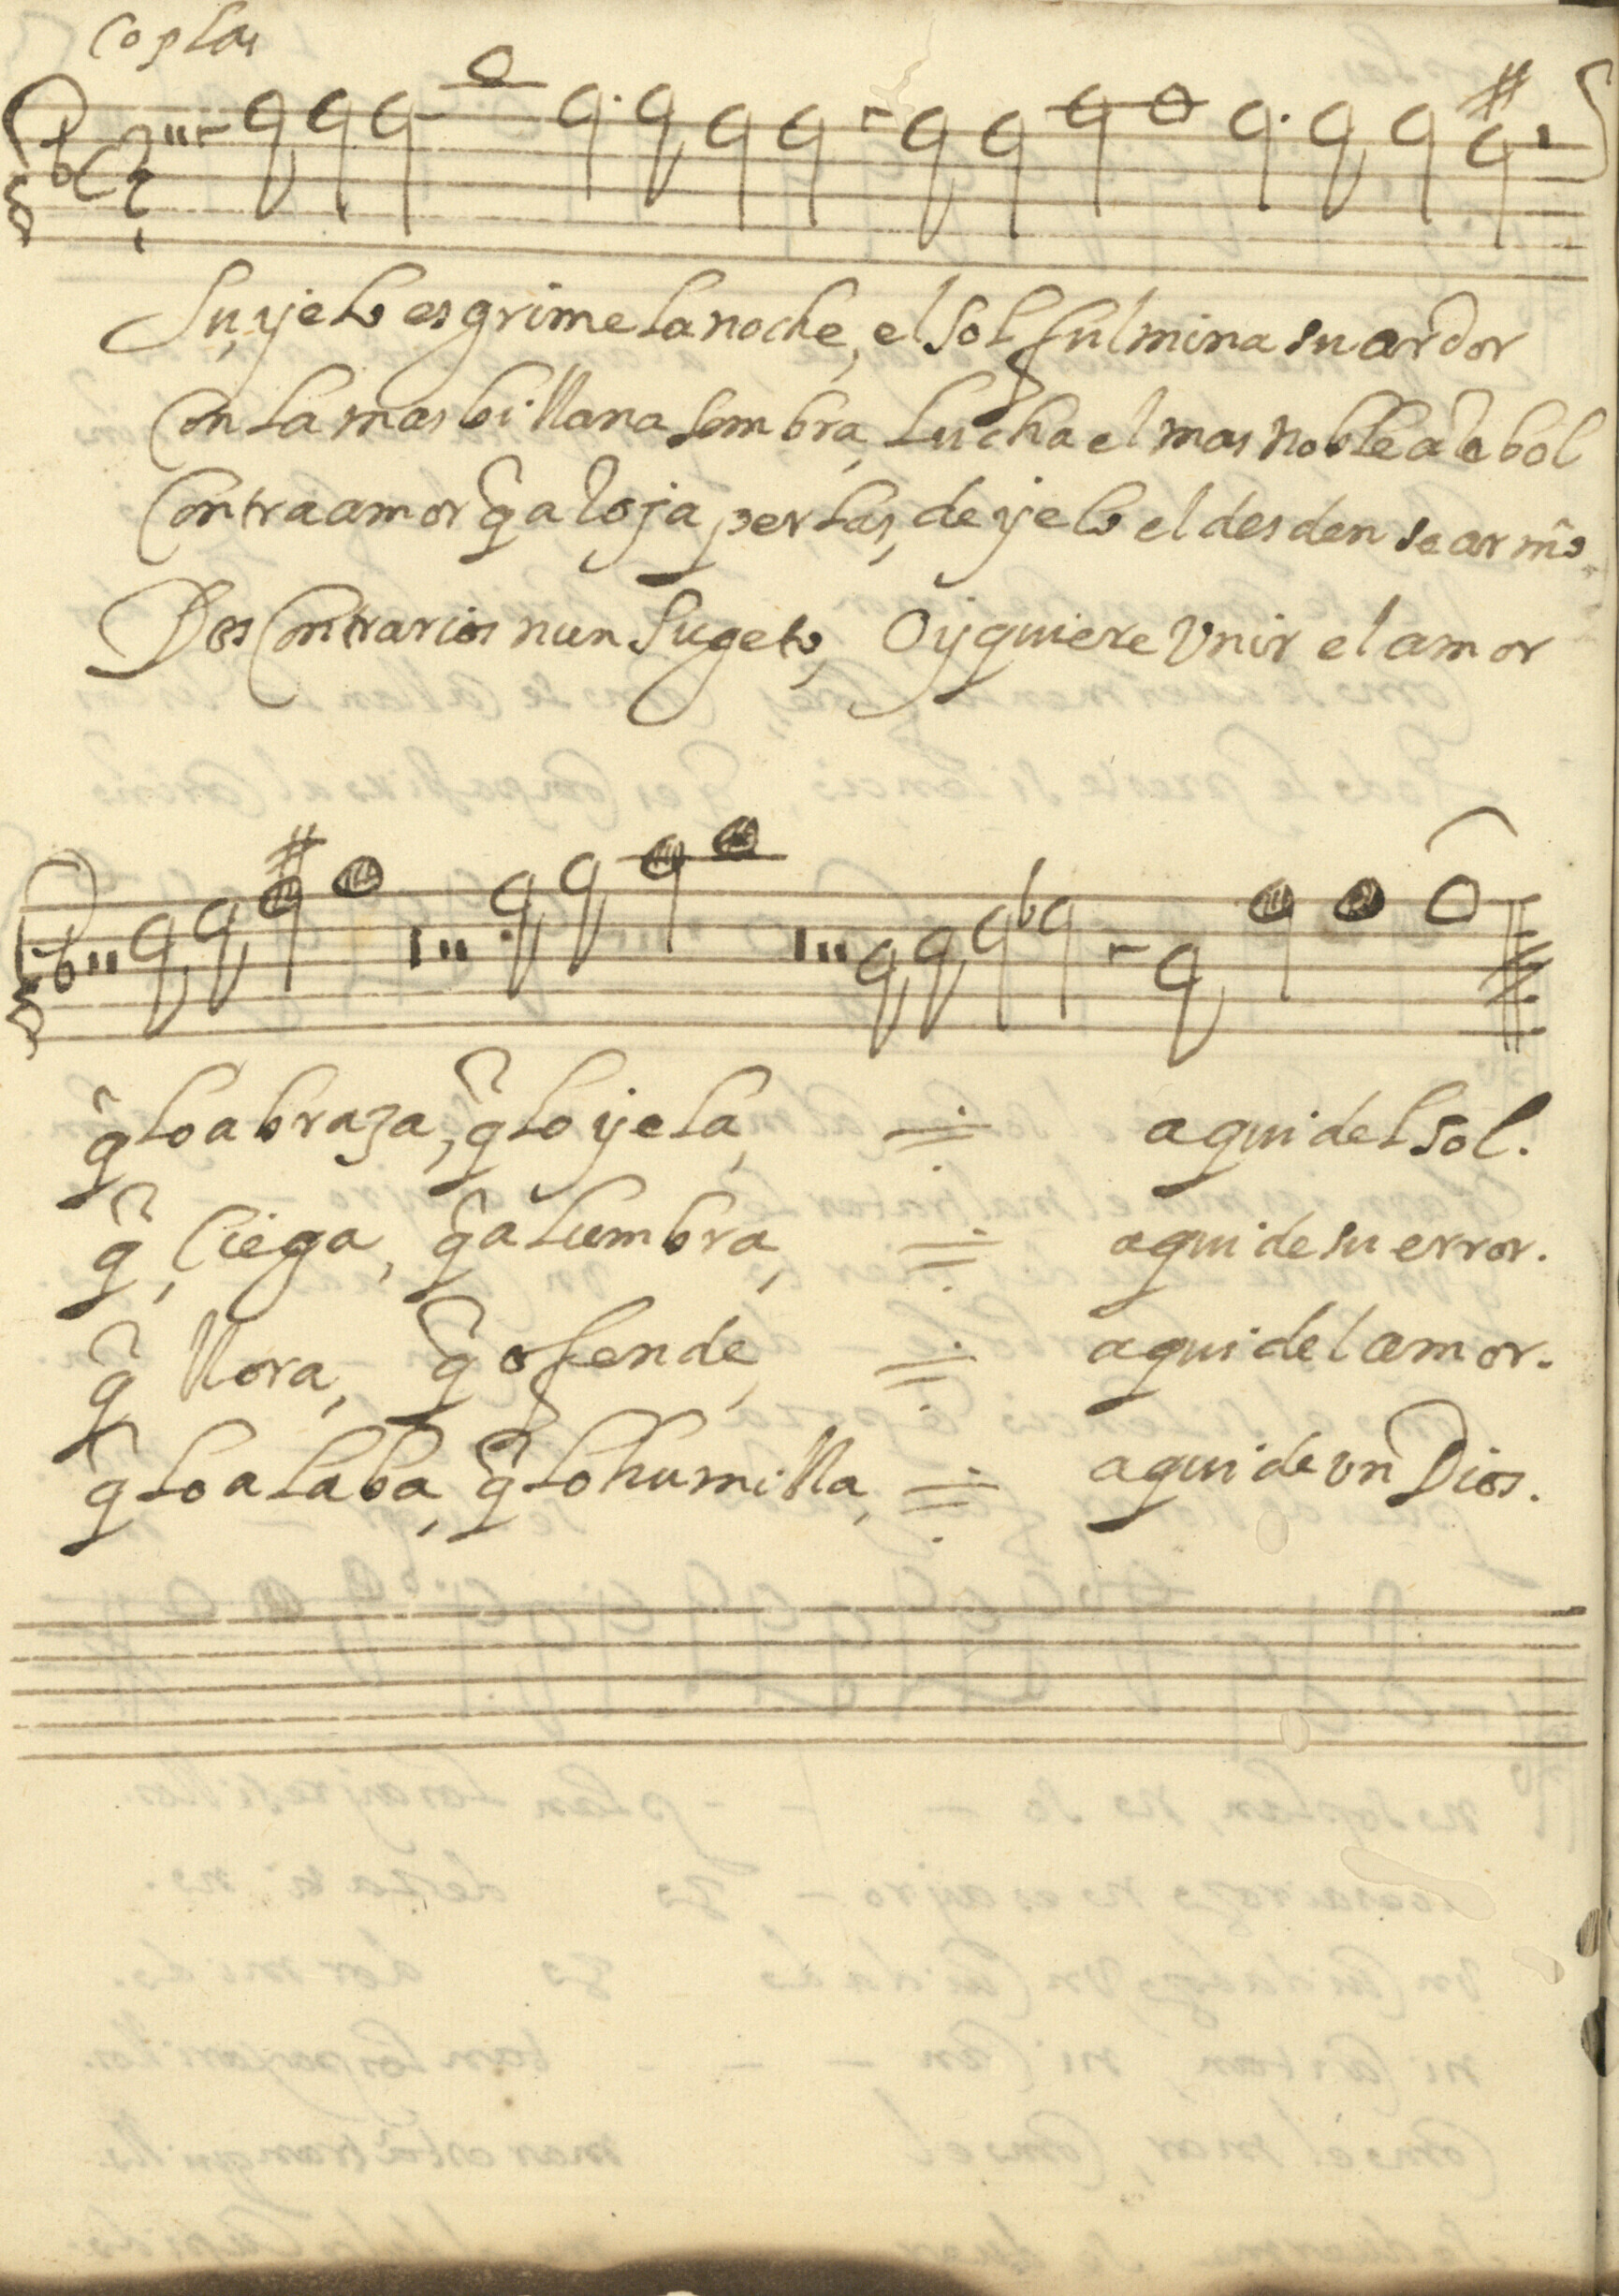 Coplas
Su yelo esgrime la noche, el sol fulmina su ardor
Con la mas billana sombra, lucha el mas noble arebol
Contra amor q̃ aloja perlas, de yelo el desden se armò
Dos Contrarios nun sugeto, Oy quiere Vnir el amor
q̃ lo abraza, q̃ lo yela, aqui del sol.
q̃ Ciega, q̃ alumbra, aqui de su error.
q̃ llora, q̃ ofende, aqui del amor.
q̃ lo alaba, q̃ lo humilla, aqui de vn Dios.